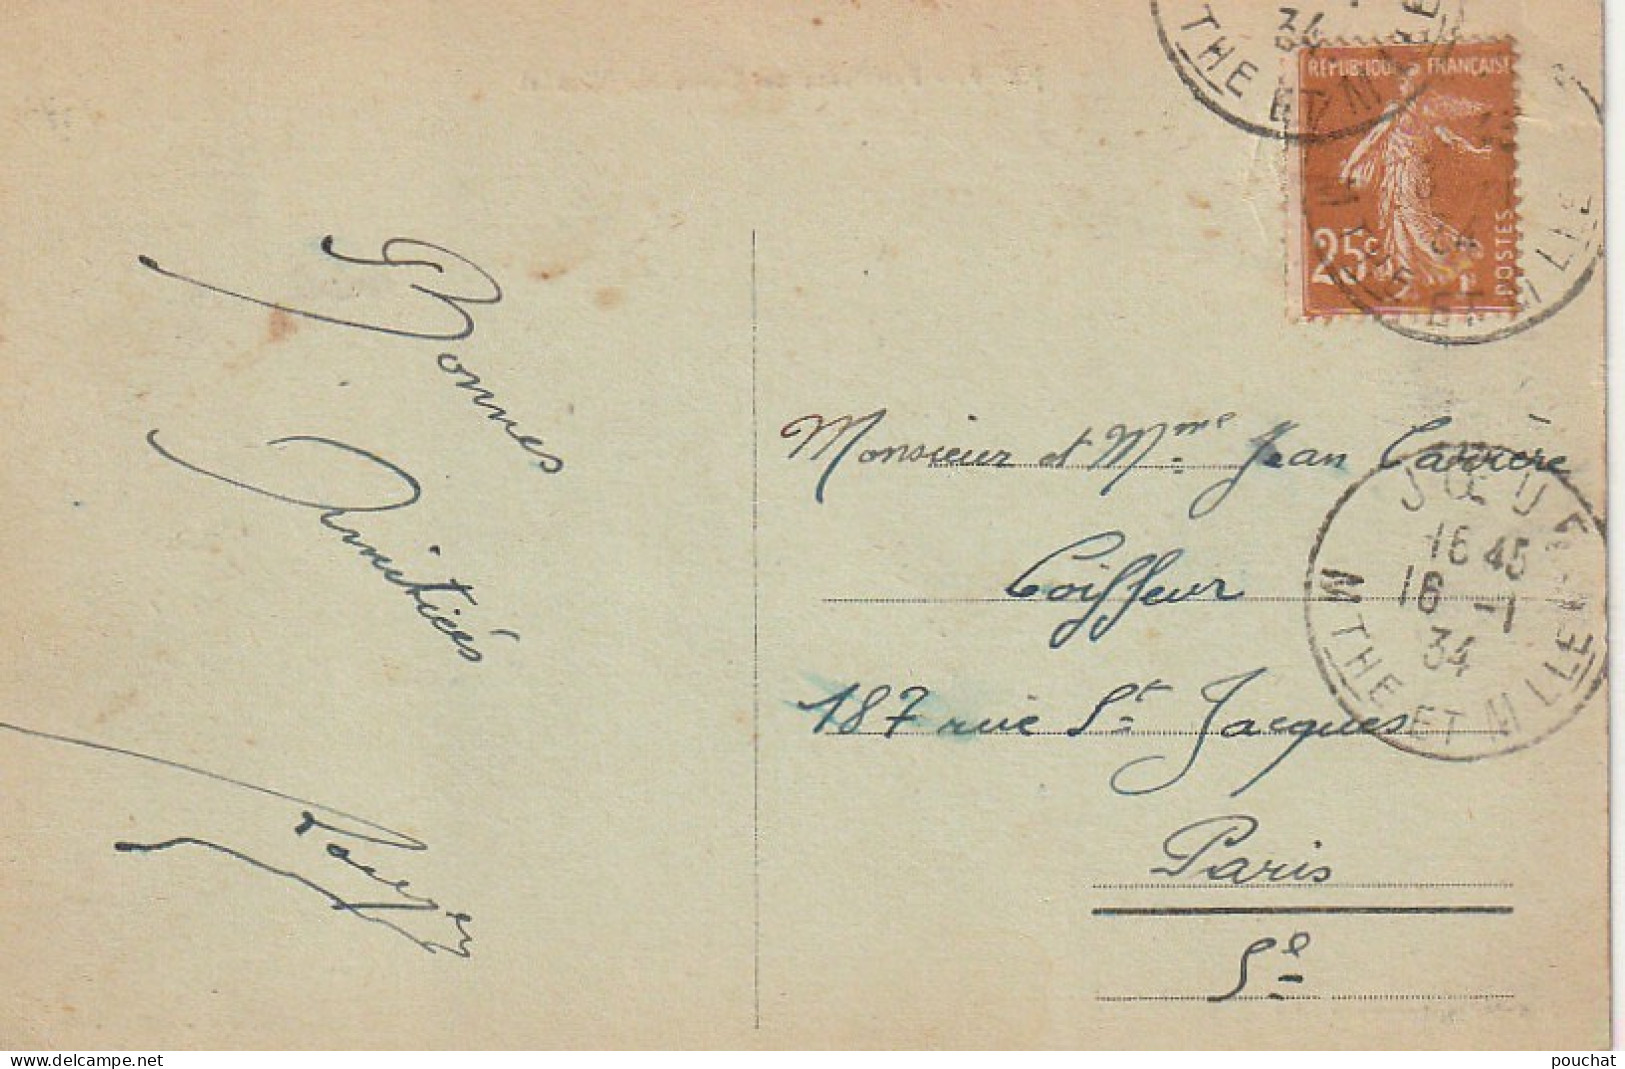 34
THE ET M
RÉPUBLIQUE FRANÇAISE
25c
POSTES
Bonnes
Amitiés
Monsieur et Mme Jean Carrière
Coiffeur
187 rue St Jacques
Paris
5e
JŒUF
16 45
16 -1
34
MTHE ET MLLE
pouchat
www.delcampe.net